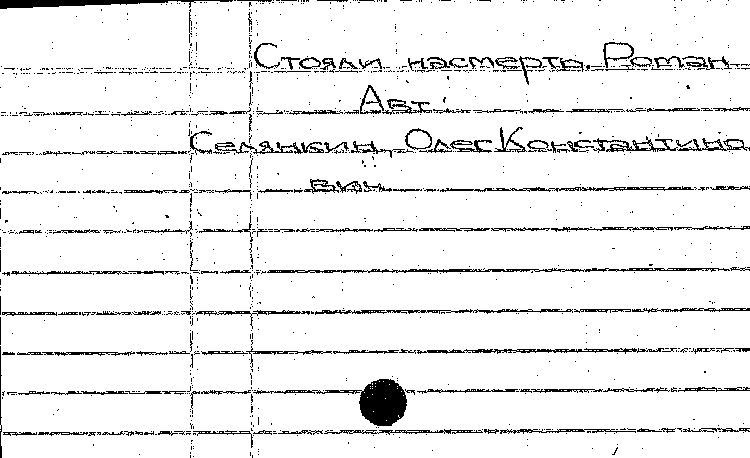 Стояли насмерть. Роман
Авт.:
Селянкин, Олег Константино
вич